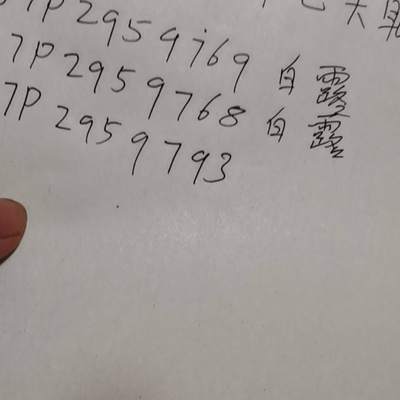 7P 2959i69 白露
7P 2959768 白露
7P 2959793